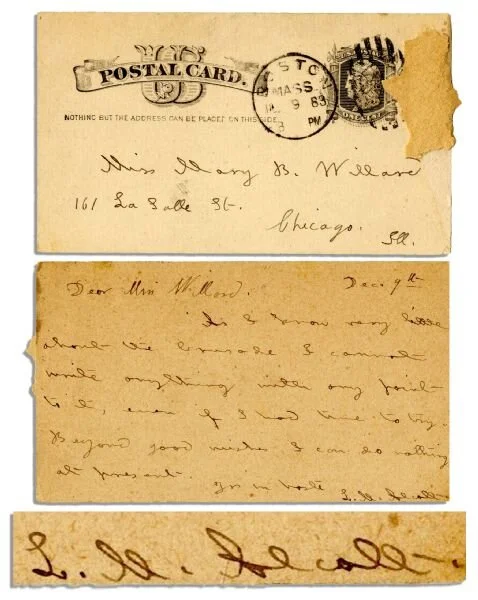 U S
POSTAL CARD.
NOTHING BUT THE ADDRESS CAN BE PLACED ON THIS SIDE.
BOSTON
MASS.
9 83
3 PM
Miss Mary B. Willard
161 La Salle St.
Chicago.
Ill.
Dear Miss Willard. Dec. 9th
As I know very little
about the Crusade I cannot
write anything with any point
to it, even if I had time to try.
Beyond good wishes I can do nothing
at present.
Yrs in haste L. M. Alcott
L. M. Alcott.